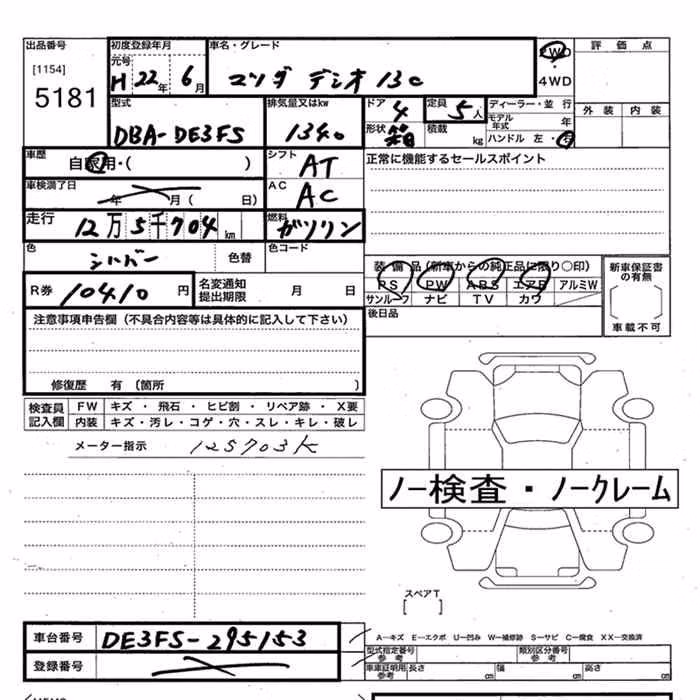 出品番号
[1154]
5181
初度登録年月
元号
H 22年 6月
車名・グレード
マツダ デミオ 13C
2WD
4WD
評価点
外装 内装
型式
DBA-DE3FS
排気量又はkw
1340
ドア
4
形状 箱
定員
5人
積載 kg
ディーラー・並行
モデル年式 年
ハンドル 左・右
車歴
自家用・( )
シフト
AT
正常に機能するセールスポイント
車検満了日
年 月( 日)
AC
AC
走行
12万5千704km
燃料
ガソリン
色
シルバー
色替
色コード
R券
10410円
名変通知
提出期限
月 日
装備品(新車からの純正品に限り○印)
PS PW ABS エアB アルミW
サンルーフ ナビ TV カワ
後日品
新車保証書
の有無
車載不可
注意事項申告欄(不具合内容等は具体的に記入して下さい)
修復歴 有〔箇所 〕
検査員
記入欄
FW キズ・飛石・ヒビ割・リペア跡・X要
内装 キズ・汚レ・コゲ・穴・スレ・キレ・破レ
メーター指示
125703K
ノー検査・ノークレーム
スペアT
[ ]
車台番号
DE3FS-295153
登録番号
A−キズ E−エクボ U−凹み W−補修跡 S−サビ C−腐食 XX−交換済
型式指定番号
参考
類別区分番号
参考
車庫証明用
参考
長さ cm 幅 cm 高さ cm